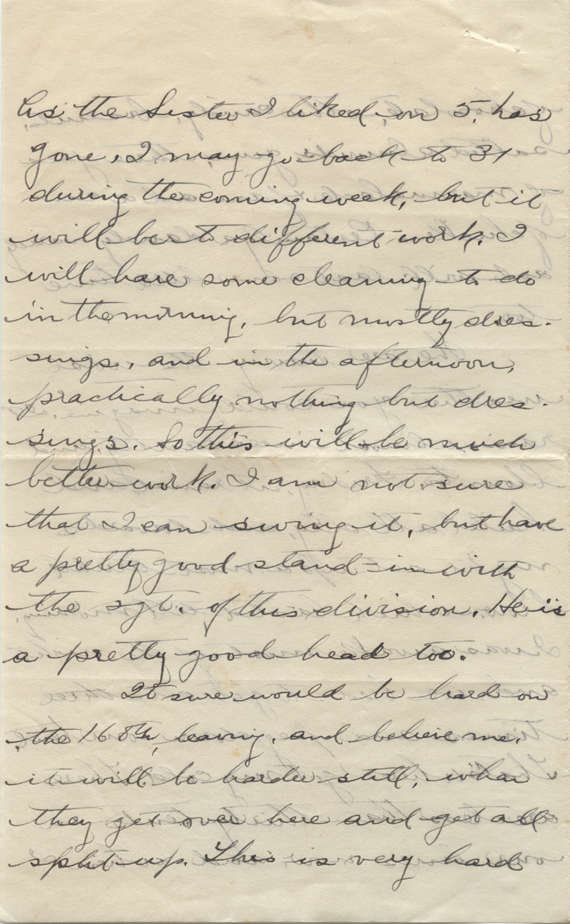 As the Sister I liked, on 5, has
gone, I may go back to 31
during the coming week, but it
will be at different work. I
will have some cleaning to do
in the morning, but mostly dres-
sings, and in the afternoon,
practically nothing but dres-
sings. So this will be much
better work. I am not sure
that I can swing it, but have
a pretty good stand-in with
the sgt. of this division. He is
a pretty good head too.
It sure would be hard on
the 168th, leaving, and believe me,
it will be harder still, when
they get over here and get all
split up. This is very hard